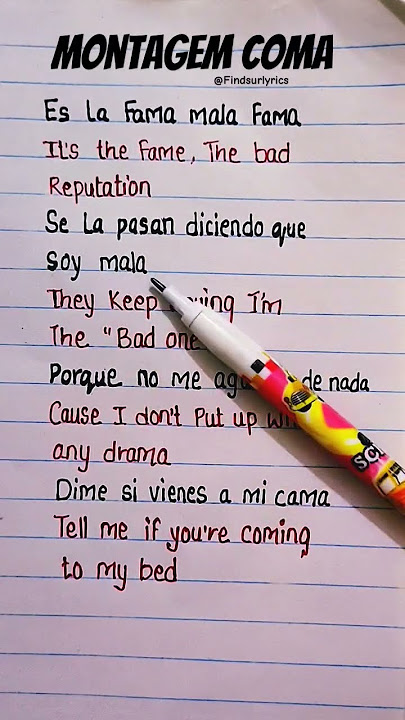 MONTAGEM COMA
@Findsurlyrics
Es La Fama mala Fama
It's the Fame, The bad
Reputation
Se La pasan diciendo que
soy mala
They Keep I'm
The "Bad one
Porque no me de nada
Cause I don't Put up
any drama
Dime si vienes a mi cama
Tell me if you're coming
to my bed